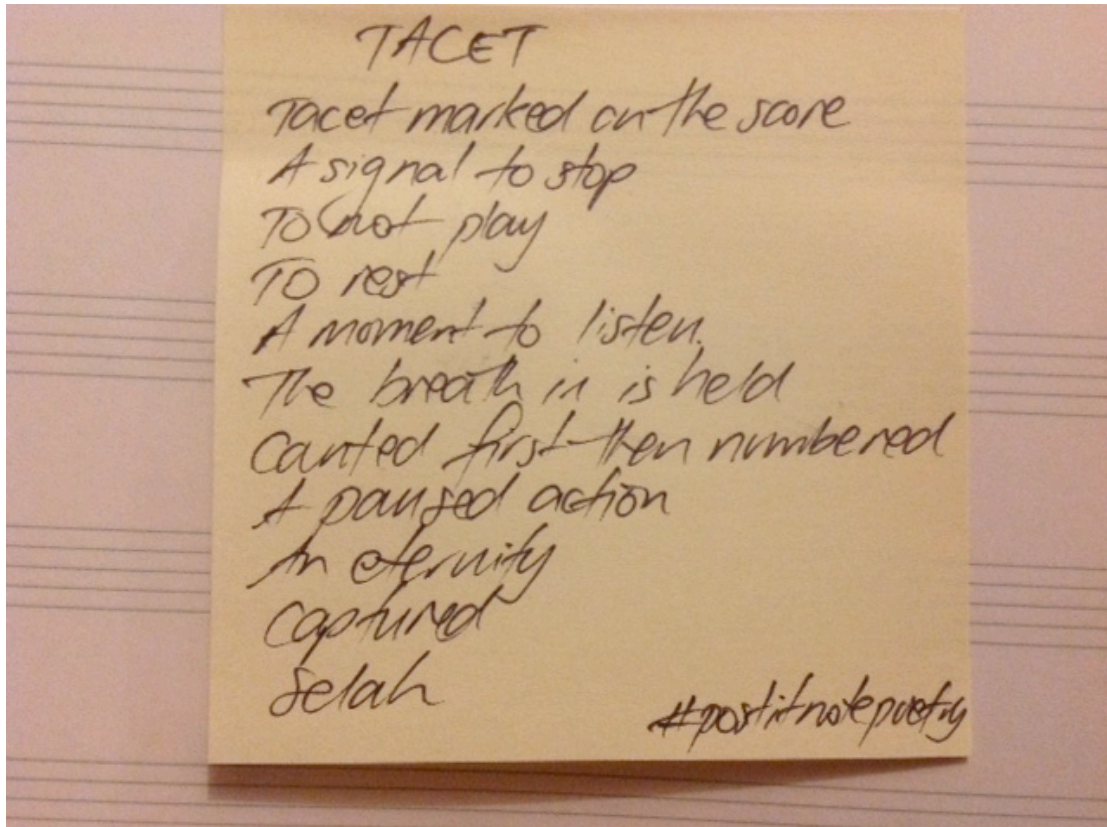 TACET
Tacet marked on the score
A signal to stop
To not play
To rest
A moment to listen.
The breath in is held
Counted first then numbered
A paused action
An eternity
Captured
Selah
#postitnotepoetry